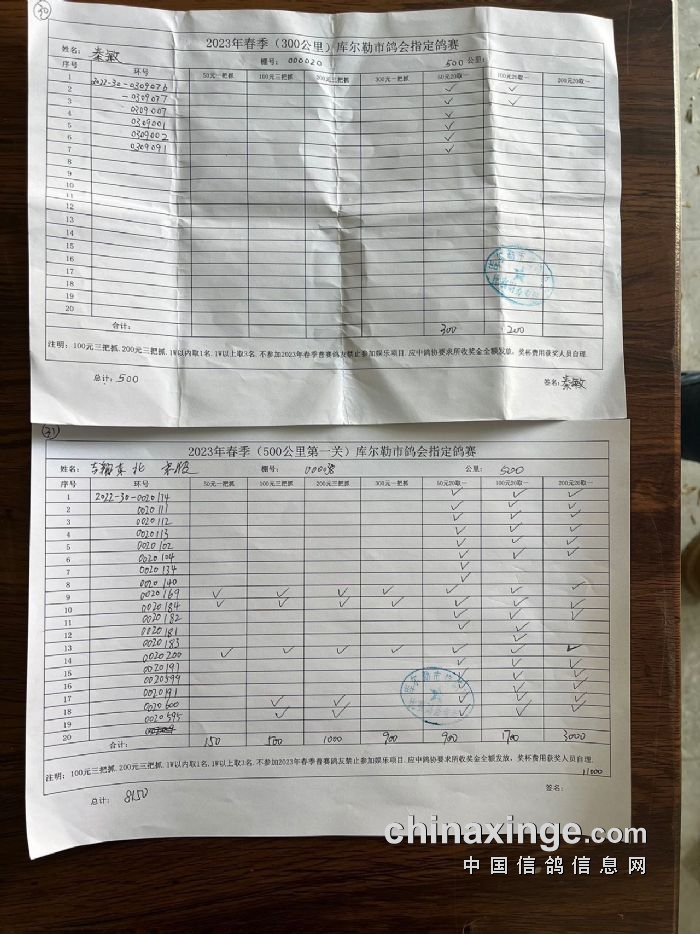 30
2023年春季（300公里）库尔勒市鸽会指定鸽赛
姓名：秦敏 棚号：000020 500公里：
序号 环号 50元一把抓 100元三把抓 200元三把抓 300元一把抓 50元20取一 100元20取一 200元20取一
1 2022-30-0309076 ✓ ✓
2 -0309077 ✓ ✓
3 0309007 ✓
4 0309001 ✓
5 0309002 ✓
6 0309091 ✓
7
8
9
10
11
12
13
14
15
16
17
18
19
20
合计： 300 200
注明：100元三把抓.200元三把抓.1W以内取1名.1W以上取3名.不参加2023年春季普赛鸽友禁止参加娱乐项目.应中鸽协要求所收奖金全额发放，奖杯费用获奖人员自理.
总计：500 签名：秦敏
31
2023年春季（500公里第一关）库尔勒市鸽会指定鸽赛
姓名： 棚号： 公里：500
序号 环号 50元一把抓 100元三把抓 200元三把抓 300元一把抓 50元20取一 100元20取一 200元20取一
1 2022-30-0020174 ✓ ✓ ✓
2 0020111 ✓ ✓ ✓
3 0020112 ✓ ✓ ✓
4 0020113 ✓ ✓ ✓
5 0020102 ✓ ✓ ✓
6 0020104 ✓ ✓ ✓
7 0020134 ✓
8 0020140 ✓
9 0020169 ✓ ✓ ✓ ✓ ✓ ✓ ✓
10 0020184 ✓ ✓ ✓ ✓ ✓ ✓
11 0020182 ✓ ✓ ✓
12 0020181 ✓ ✓
13 0020183 ✓
14 0020200 ✓ ✓ ✓ ✓ ✓ ✓ ✓
15 0020197
16 0020599
17 0020191
18 0020600
19 0020595
20
合计： 150 500 1000 900 900 1700 3000
注明：100元三把抓.200元三把抓.1W以内取1名.1W以上取3名.不参加2023年春季普赛鸽友禁止参加娱乐项目.应中鸽协要求所收奖金全额发放，奖杯费用获奖人员自理.
总计：8150 签名：
chinaxinge.com
中国信鸽信息网